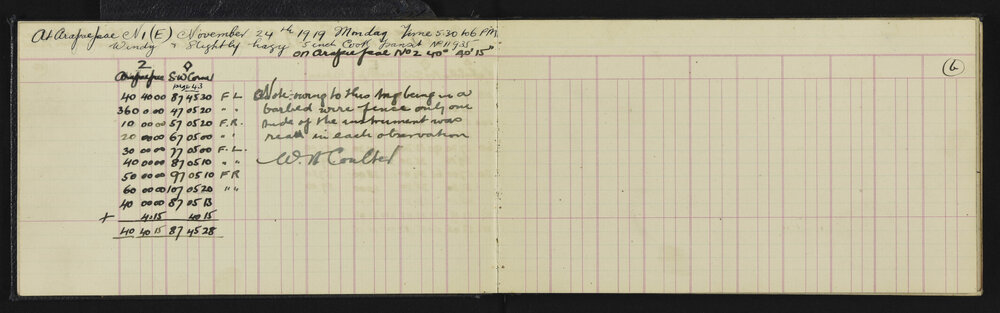 At Arapaepae No 1 (E) November 24th 1919 Monday Time 5.30 to 6 PM
Windy & Slightly hazy 5 inch Cook Transit No 11935
on Arapaepae No 2 40° 40' 15"
(6)
2
Arapaepae SW Corner
page 43
40 40 00 87 45 30 F L
360 00 00 47 05 20 " "
10 00 00 57 05 20 F.R.
20 00 00 67 05 00 " "
30 00 00 77 05 00 F.L.
40 00 00 87 05 10 " "
50 00 00 97 05 10 F R
60 00 00 107 05 20 " "
40 00 00 87 05 13
+ 40 15 40 15
40 40 15 87 45 28
Note owing to this trig being in a
barbed wire fence only one
side of the instrument was
read in each observation
W. H Coulter